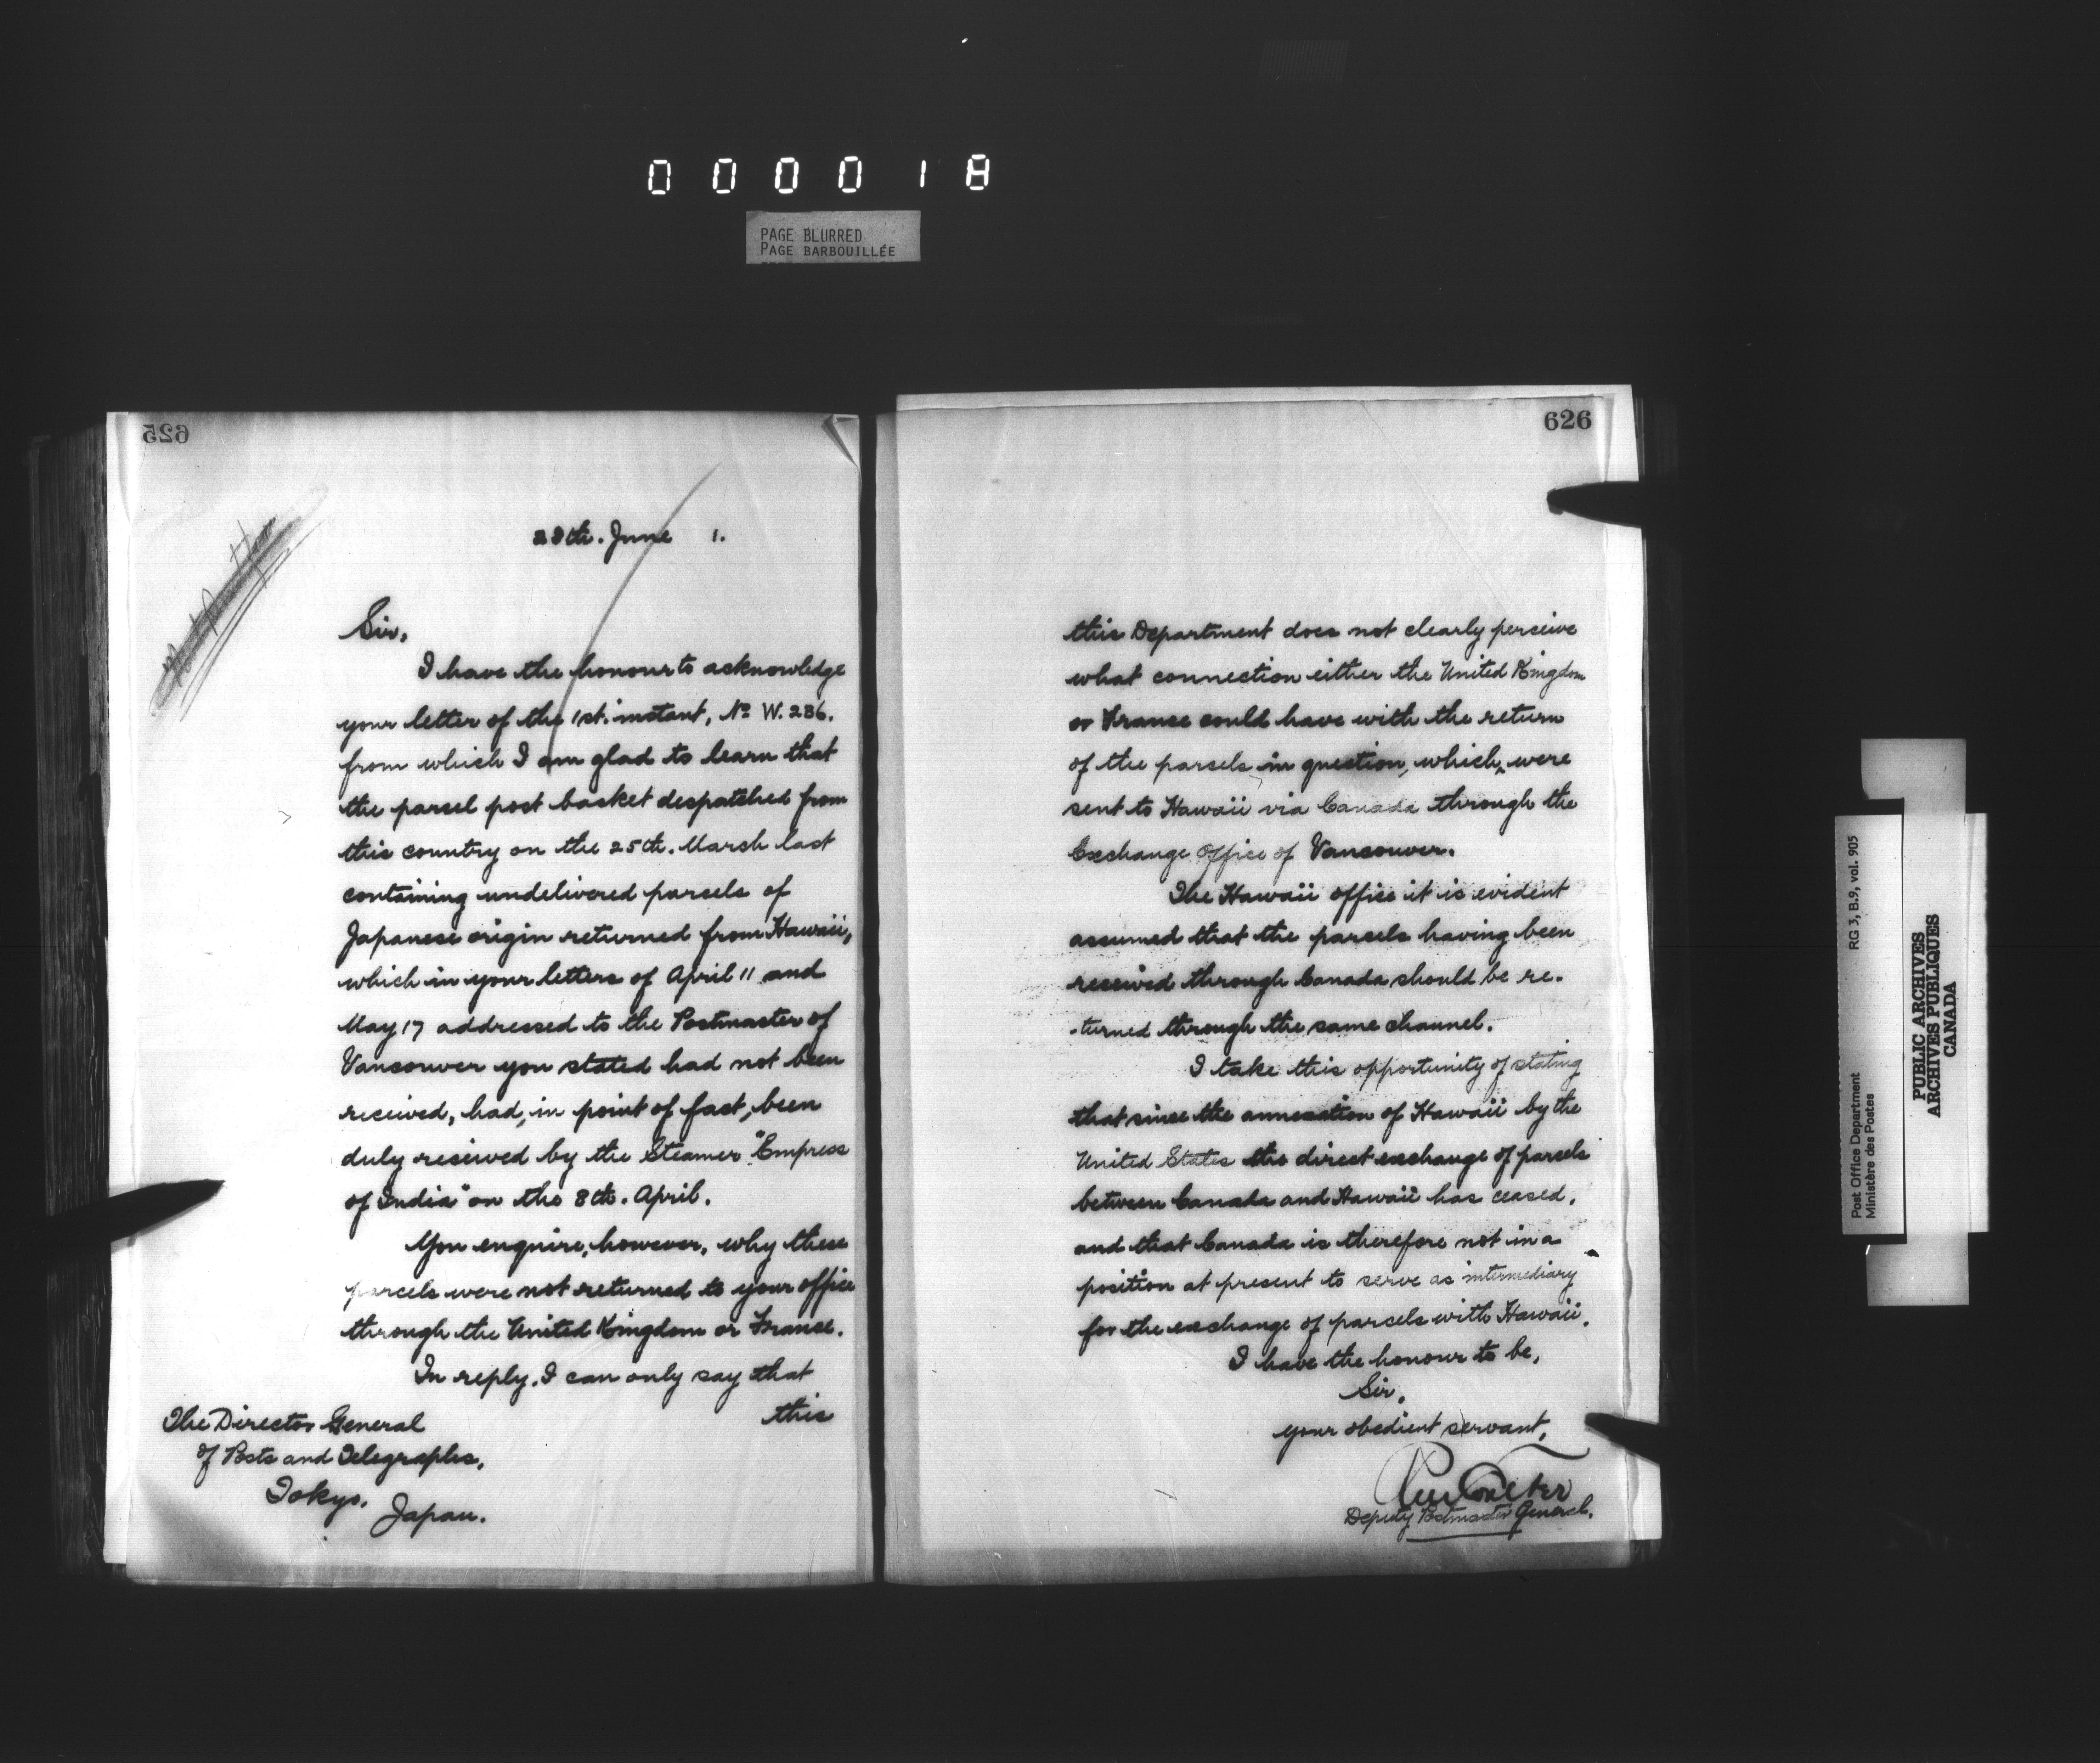 000018
PAGE BLURRED
PAGE BARBOUILLÉE
625
28th. June 1.
Sir,
I have the honour to acknowledge
your letter of the 1st. instant, No W. 236.
from which I am glad to learn that
the parcel post basket despatched from
this country on the 25th. March last
containing undelivered parcels of
Japanese origin returned from Hawaii,
which in your letters of April 11 and
May 17 addressed to the Postmaster of
Vancouver you stated had not been
received, had, in point of fact, been
duly received by the Steamer "Empress
of India" on the 8th. April.
You enquire, however, why these
parcels were not returned to your office
through the United Kingdom or France.
In reply, I can only say that
this
The Director General
of Posts and Telegraphs,
Tokyo,
Japan.
626
this Department does not clearly perceive
what connection either the United Kingdom
or France could have with the return
of the parcels in question, which were
sent to Hawaii via Canada through the
Exchange Office of Vancouver.
The Hawaii office it is evident
assumed that the parcels having been
received through Canada should be re-
-turned through the same channel.
I take this opportunity of stating
that since the annexation of Hawaii by the
United States the direct exchange of parcels
between Canada and Hawaii has ceased,
and that Canada is therefore not in a
position at present to serve as intermediary
for the exchange of parcels with Hawaii.
I have the honour to be,
Sir,
your obedient servant,
Coulter
Deputy Postmaster General.
Post Office Department
Ministère des Postes
RG 3, B.9, vol. 905
PUBLIC ARCHIVES
ARCHIVES PUBLIQUES
CANADA